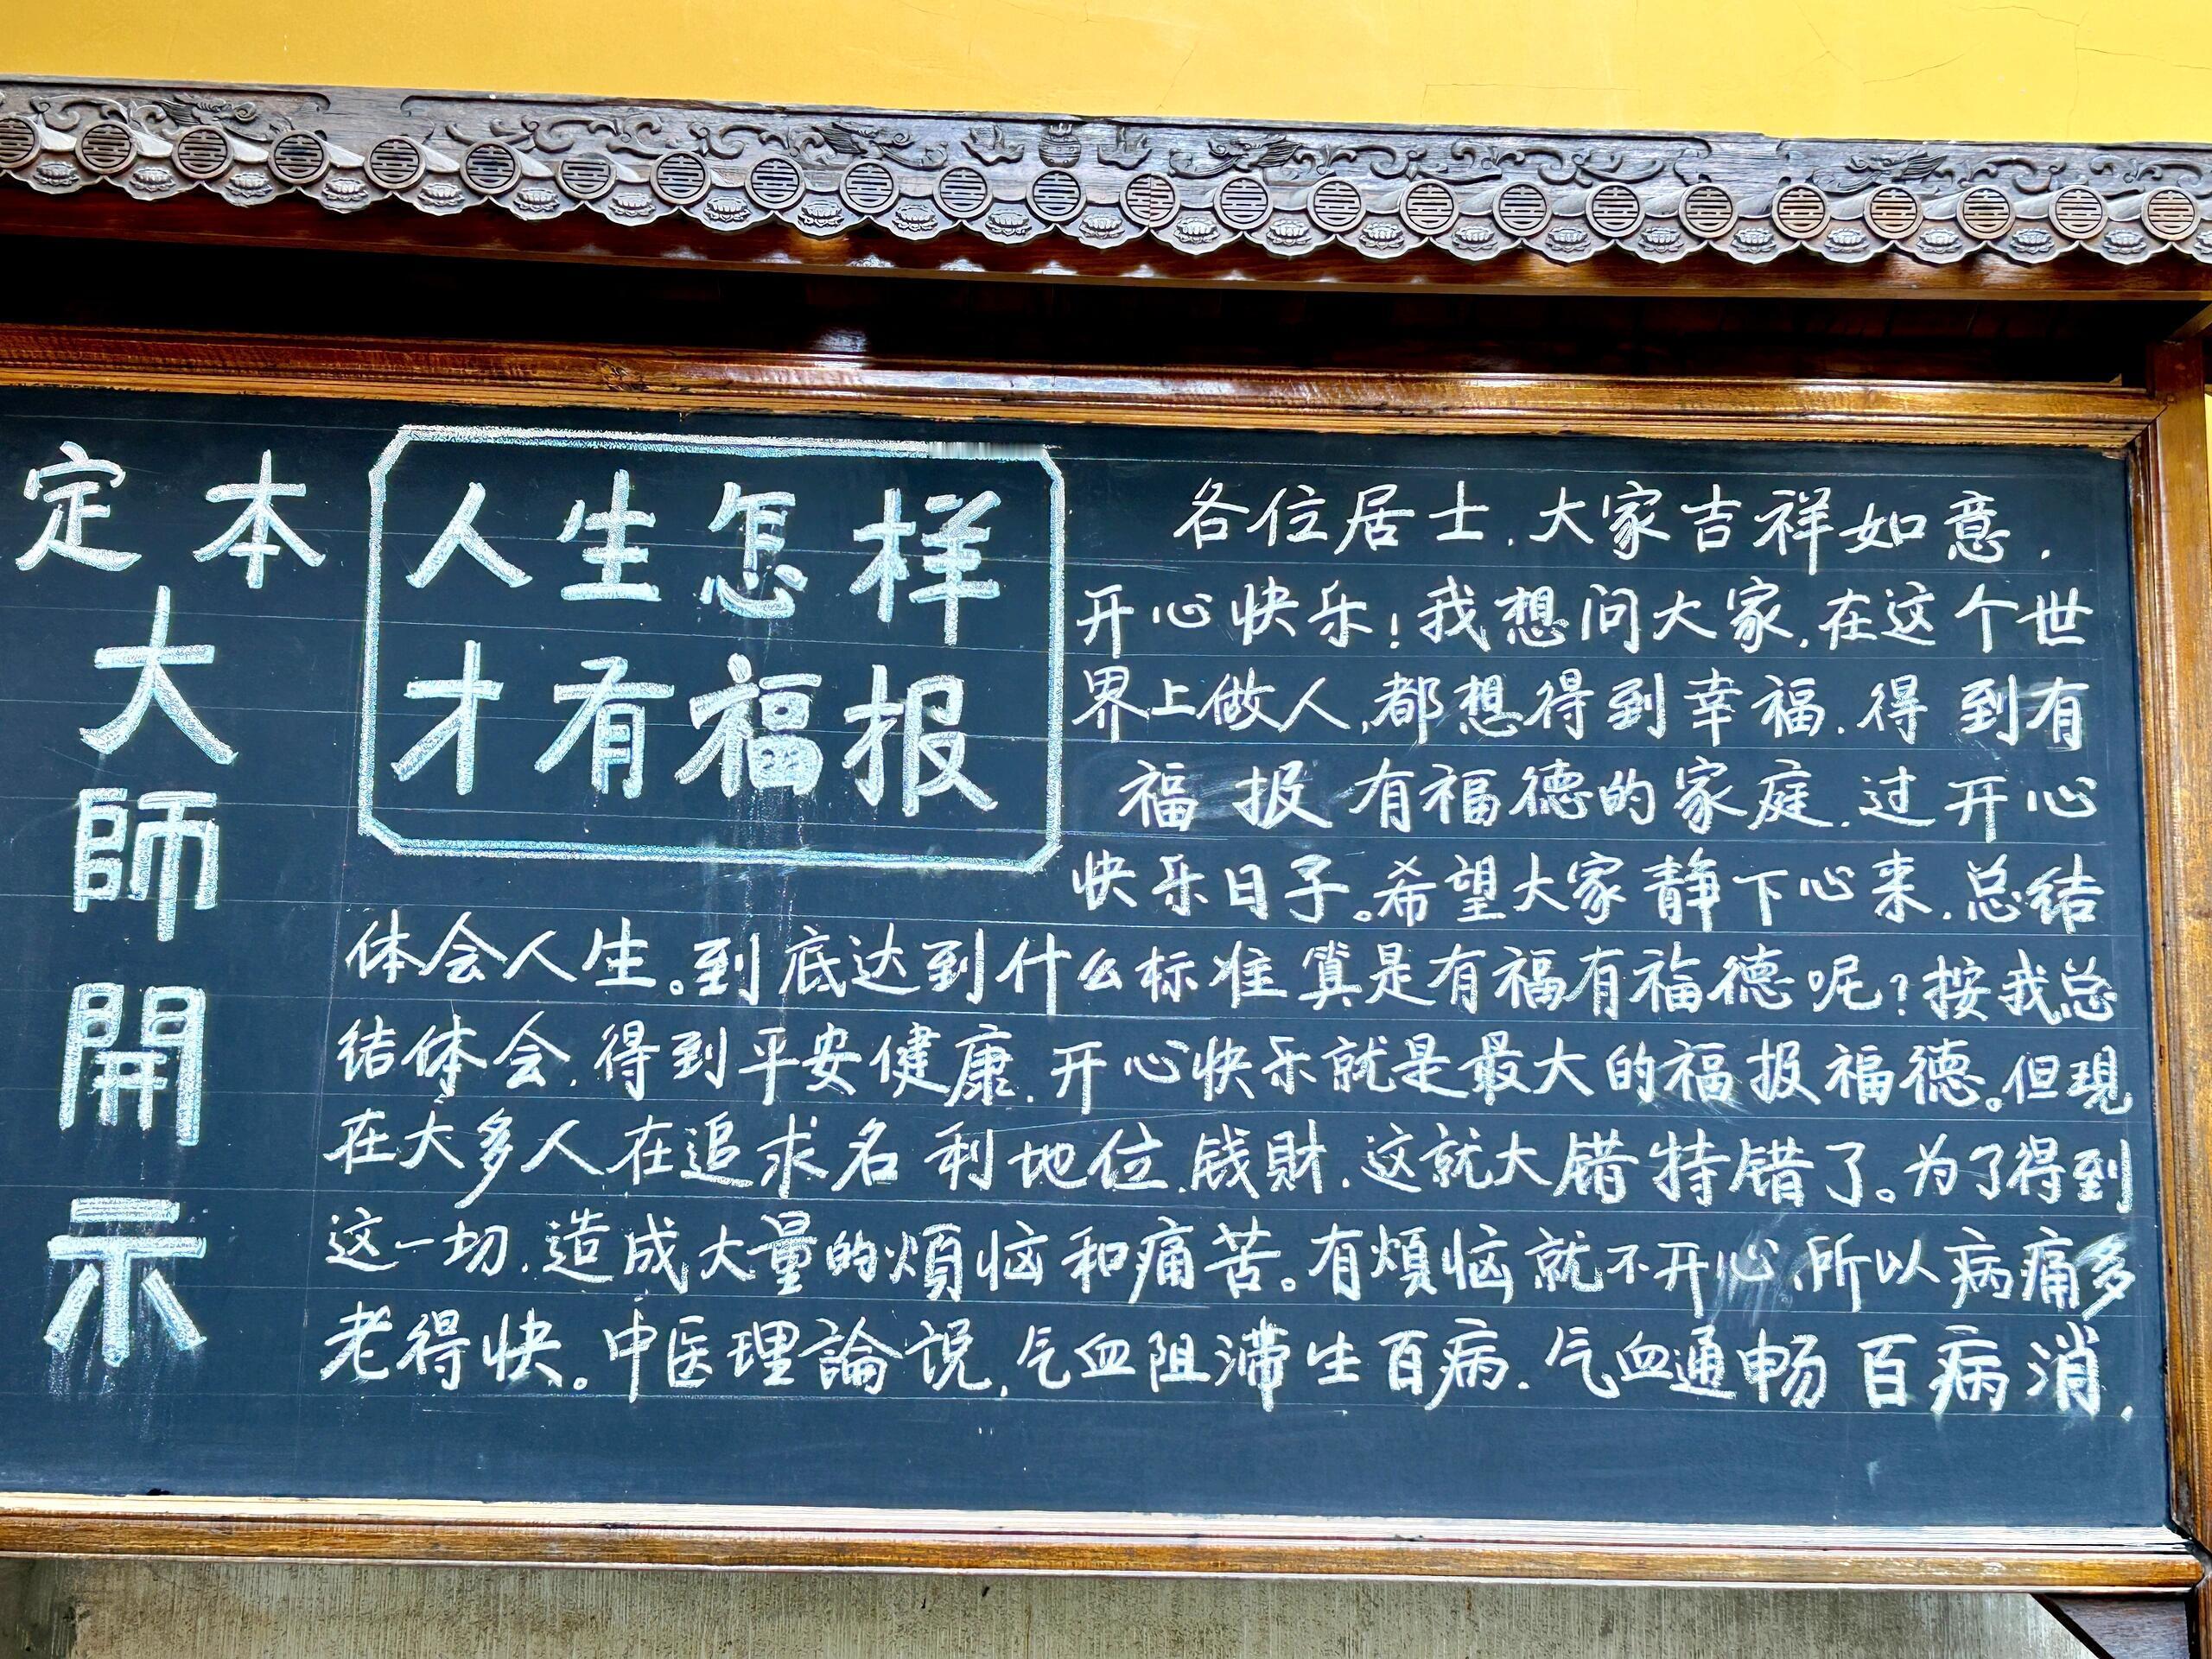 定 本
大
師
開
示
人生怎样
才有福报
各位居士.大家吉祥如意.
开心快乐!我想问大家.在这个世
界上做人.都想得到幸福.得到有
福报有福德的家庭.过开心
快乐日子。希望大家静下心来.总结
体会人生。到底达到什么标准算是有福有福德呢?按我总
结体会.得到平安健康.开心快乐就是最大的福报福德。但現
在大多人在追求名利地位.钱財.这就大错特错了。为了得到
这一切.造成大量的煩恼和痛苦。有煩恼就不开心.所以病痛多
老得快。中医理論说.气血阻滞生百病.气血通畅百病消.